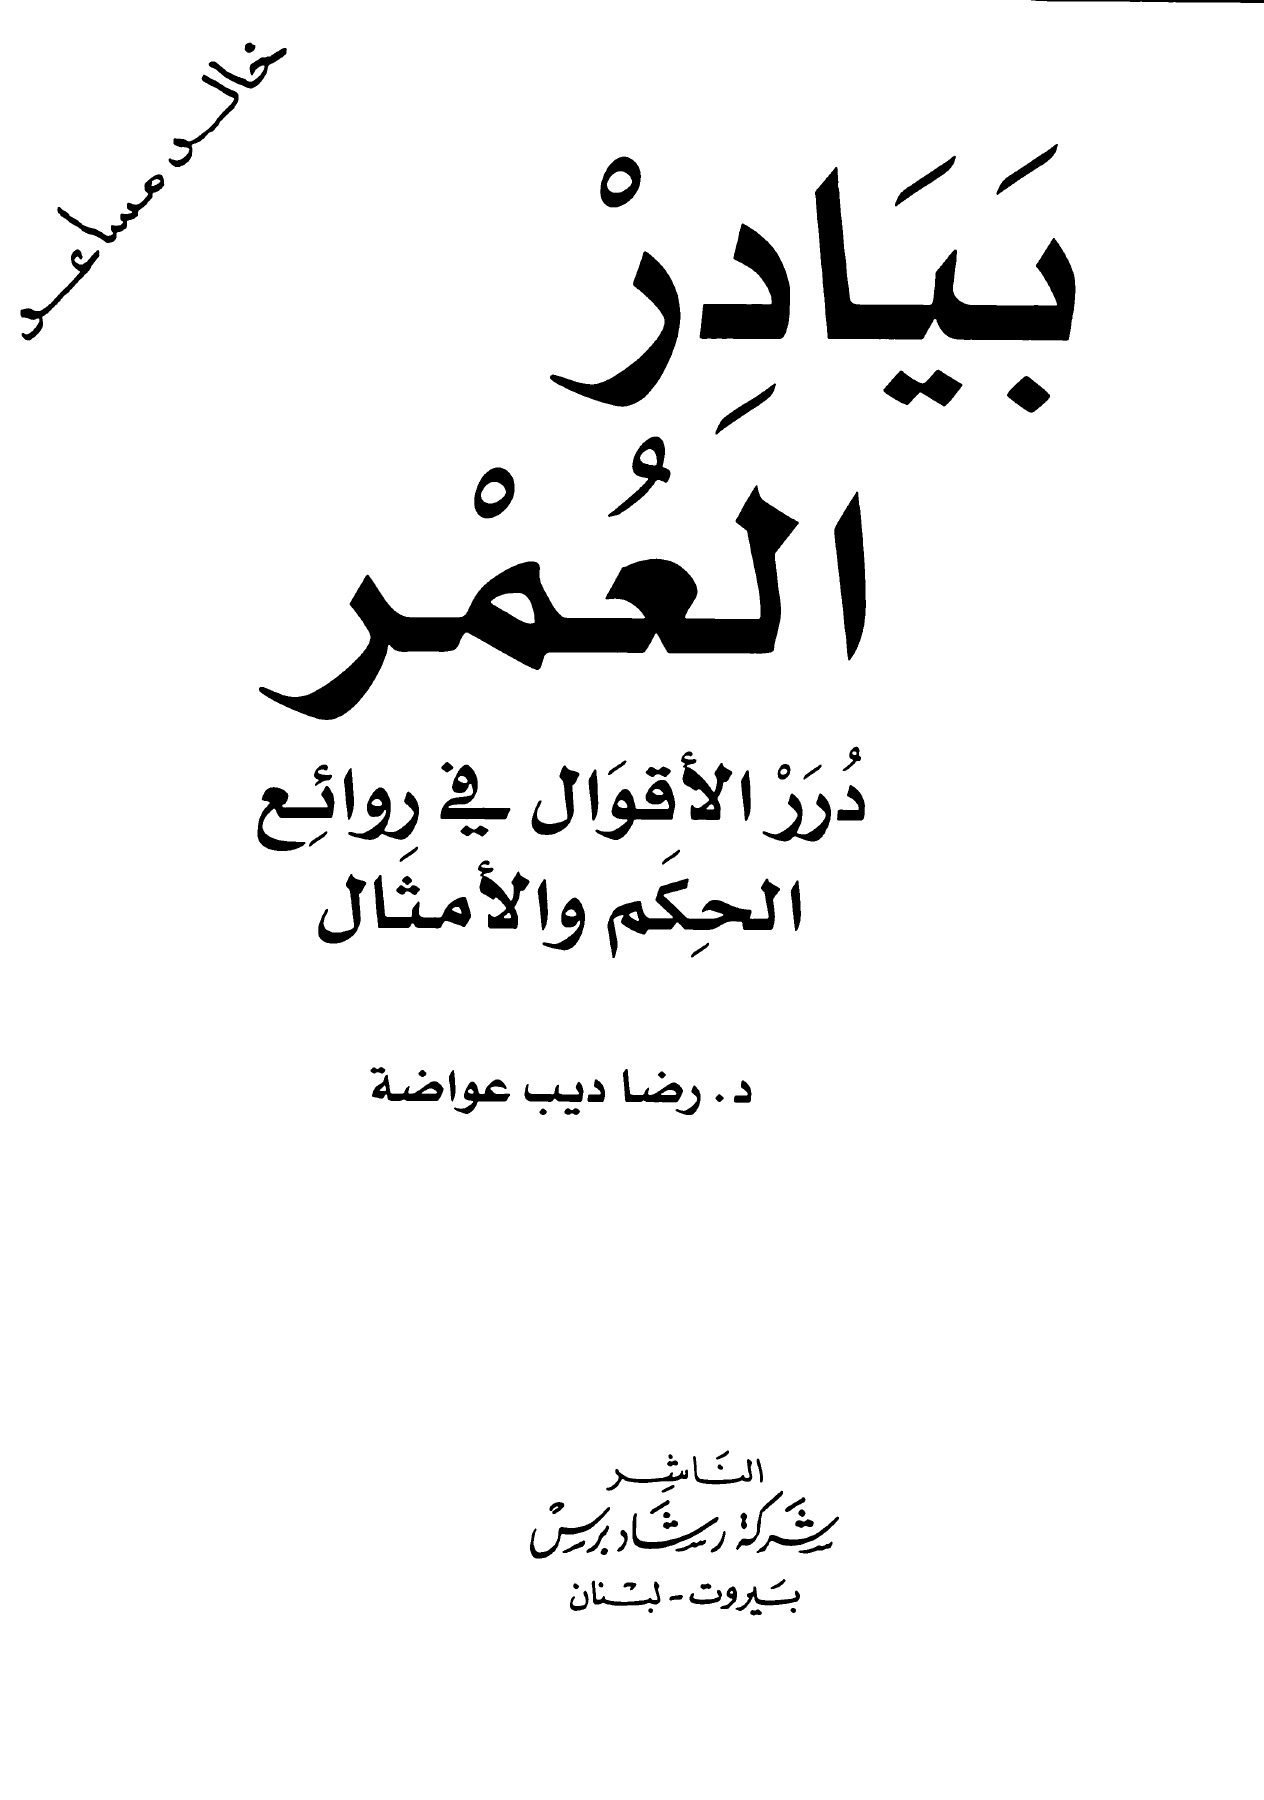 خالد مساعد
بَيَادِرْ
العُمْرَ
دُرَرْ الأقوَال في رِوائِع
الحِكَم والأمثَال
د. رضا ديب عواضة
النَاشِر
شَركة رشَاد برسْ
بَيروت - لبْنان